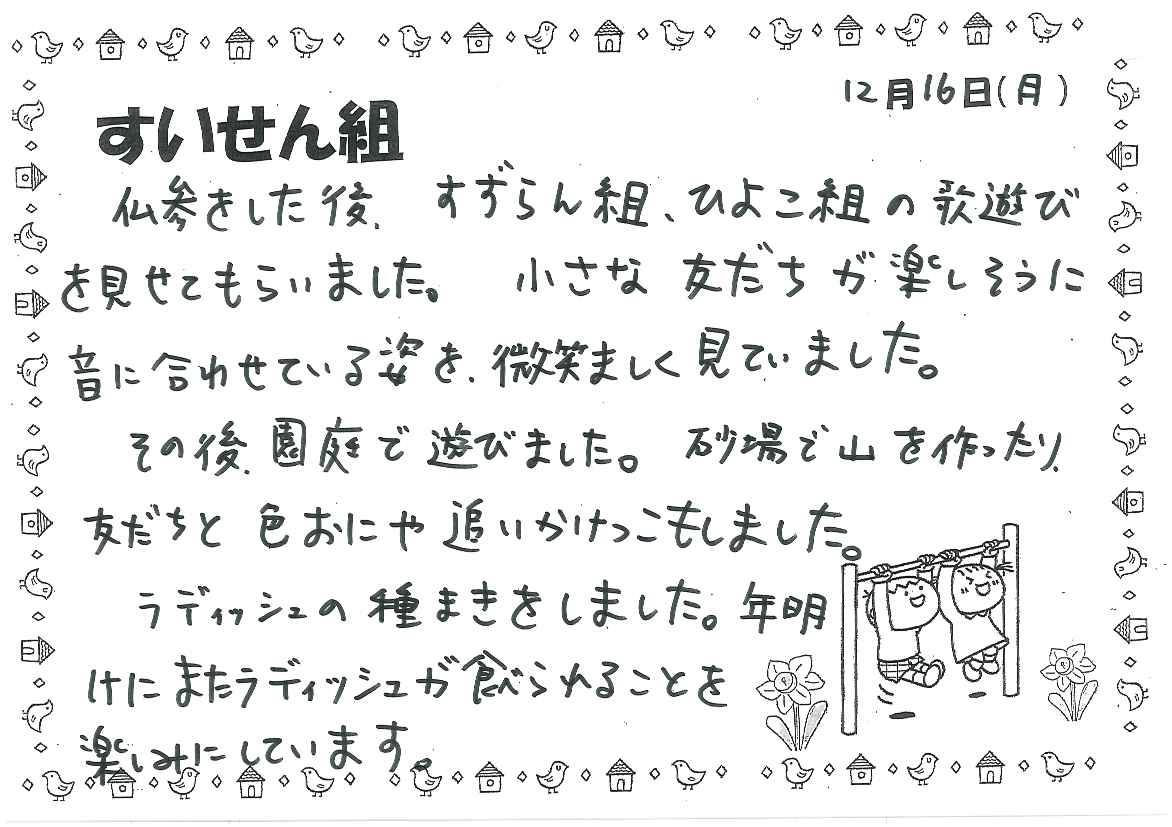 12月16日(月)
すいせん組
仏参をした後、すずらん組、ひよこ組の歌遊び
を見せてもらいました。小さな友だちが楽しそうに
音に合わせている姿を、微笑ましく見ていました。
その後、園庭で遊びました。砂場で山を作ったり、
友だちと色おにや追いかけっこもしました。
ラディッシュの種まきをしました。年明
けにまたラディッシュが食べられることを
楽しみにしています。